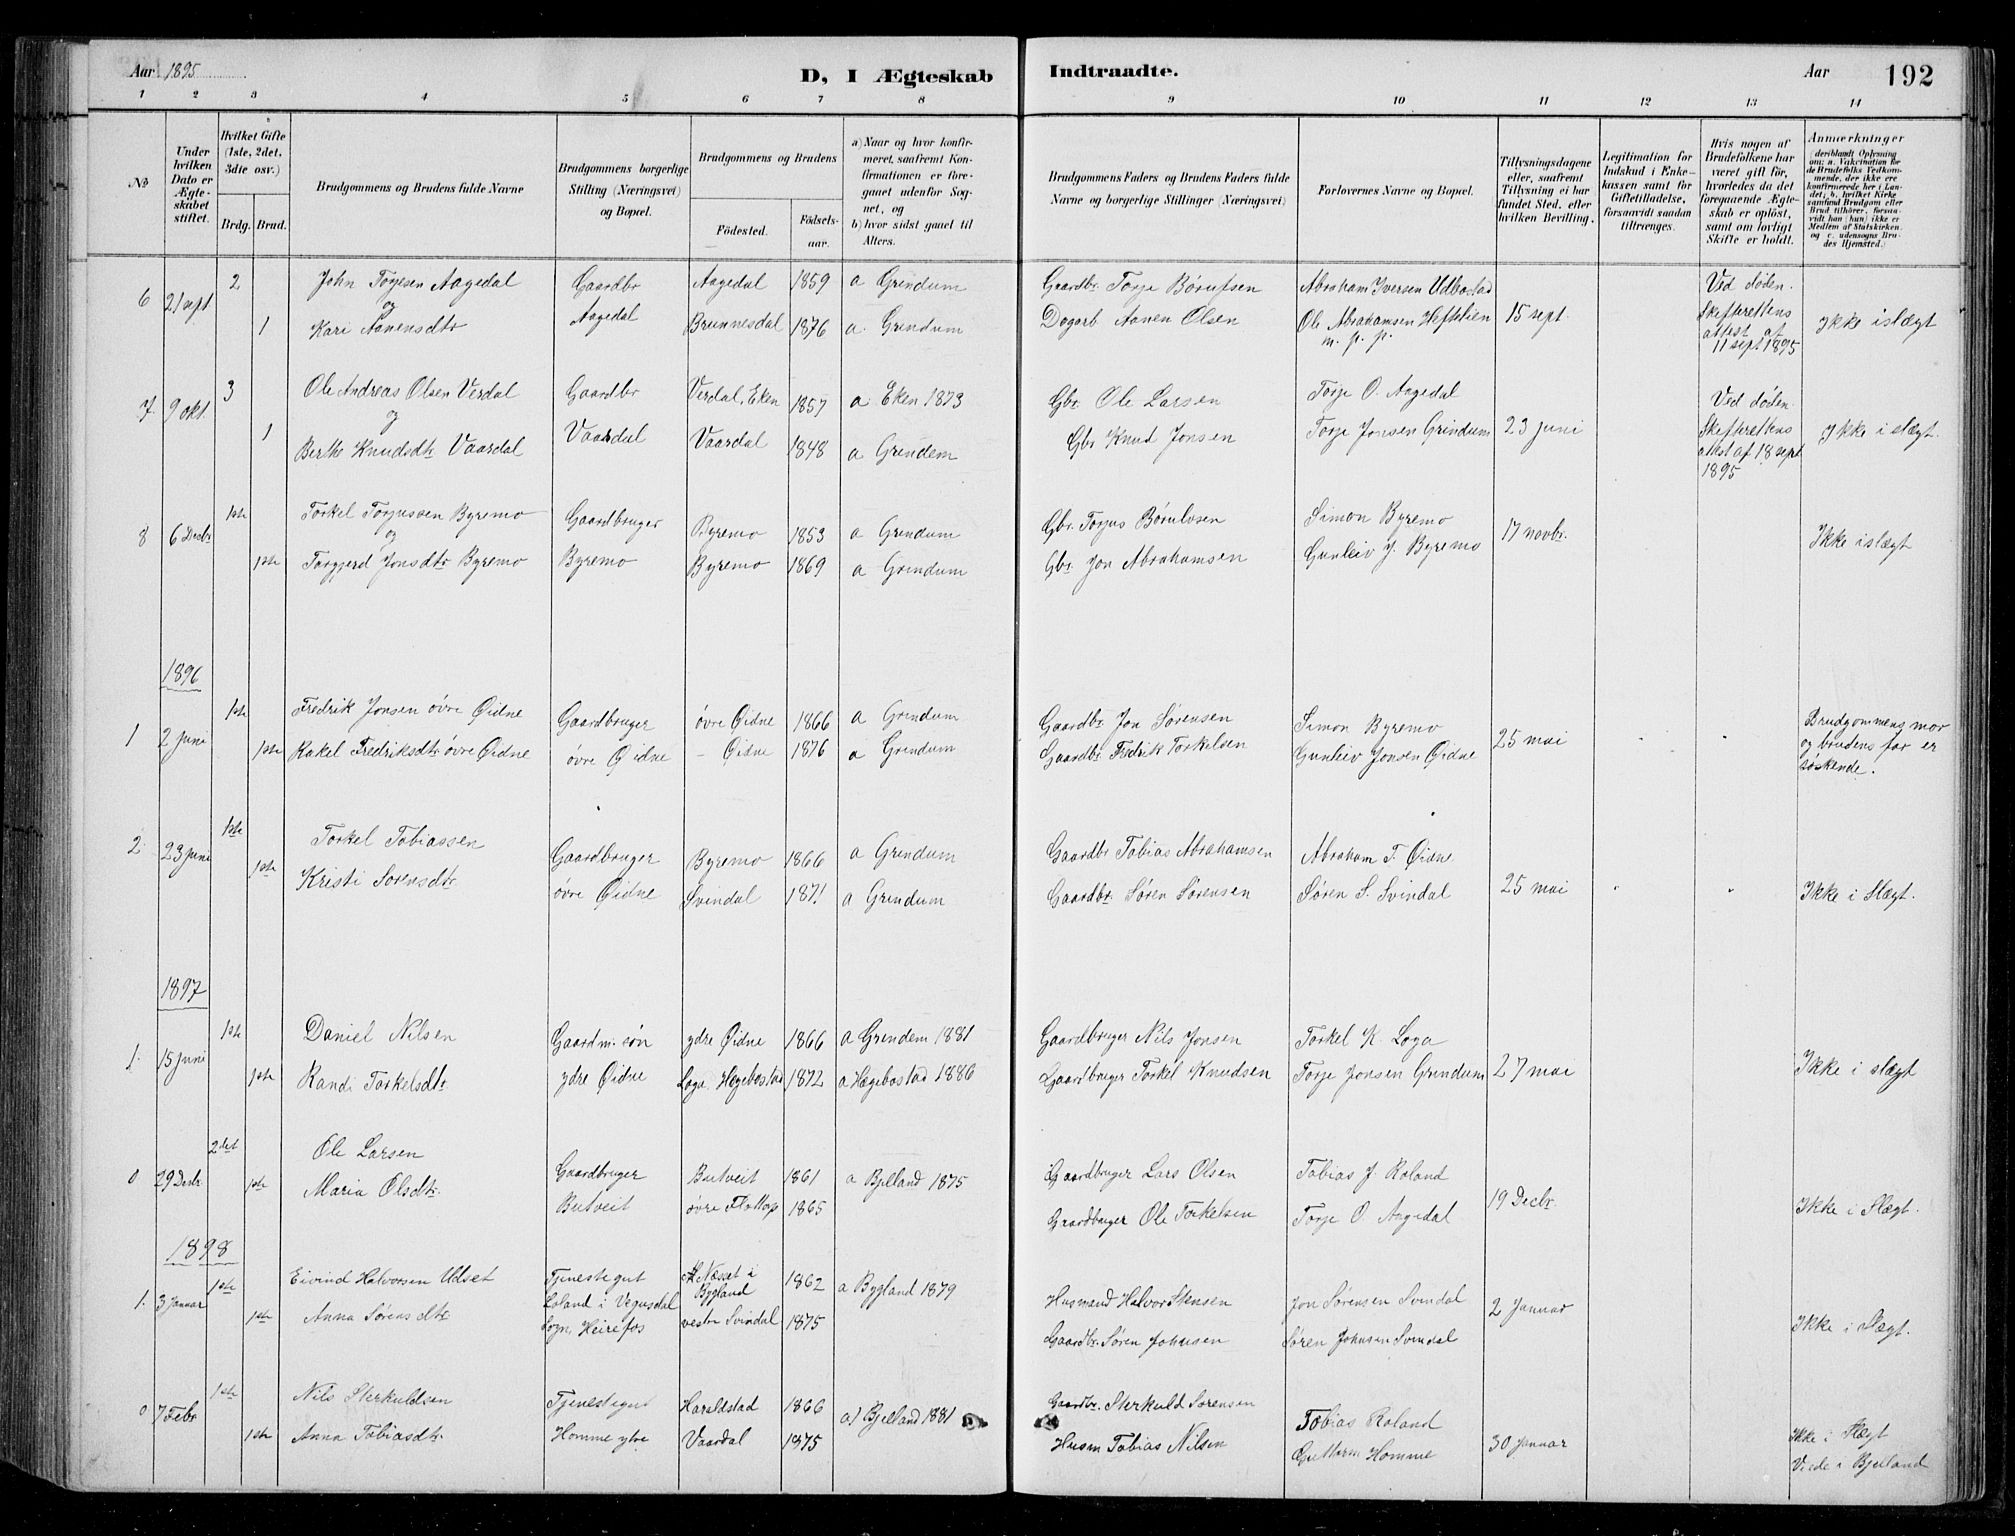 Aar 1895
D, I Ægteskab
Indtraadte.
Aar
192
1 2 3 4 5 6 7 8 9 10 11 12 13 14
No
Under hvilken Dato er Ægteskabet stiftet.
Hvilket Gifte (1ste, 2det, 3die osv.)
Brdg. Brud.
Brudgommens og Brudens fulde Navne
Brudgommens borgerlige Stilling (Næringsvei) og Bopæl.
Brudgommens og Brudens
Födested. Födsels-aar.
a) Naar og hvor konfirmeret, saafremt Konfirmationen er foregaaet udenfor Sognet, og
b) hvor sidst gaaet til Alters.
Brudgommens Faders og Brudens Faders fulde Navne og borgerlige Stillinger (Næringsvei)
Forlovernes Navne og Bopæl.
Tillysningsdagene eller, saafremt Tillysning ei har fundet Sted, efter hvilken Bevilling.
Legitimation for Indskud i Enkekassen samt for Giftetilladelse, forsaavidt saadan tiltrænges.
Hvis nogen af Brudefolkene har været gift för, hvorledes da det foregaaende Ægteskab er oplöst, samt om lovligt Skifte er holdt.
Anmærkninger (deriblandt Oplysning om: a. Vakcination for de Brudefolks Vedkommende, der ikke ere konfirmerede her i Landet; b. hvilket Kirkesamfund Brudgom eller Brud tilhörer, forsaavidt han (hun) ikke er Medlem af Statskirken, og c. udensogns Brudes Hjemsted.)
6 21 sept 2 John Torjesen Aagedal Gaardbr Aagedal 1859 a Grindum Gaardbr. Torje Børufsen Abraham Iversen Udbostad Ved døden.
og
1 Kari Aanensdtr Aagedal Brunnesdal 1876 a. Grendum Dagarb Aanen Olsen Ole Abrahamsen Heftelien 15 sept. Skifterettens Ikke islægt
m. p. p. attest af 11 sept 1895
7. 9 okt. 3 Ole Andreas Olsen Verdal Gaardbr Verdal, Eken 1857 a Eken 1873 Gbr Ole Larsen Torje O. Aagedal Ved døden.
og
1 Berthe Knudsdtr Vaardal Vaardal Vaardal 1848 a Grendem Gbr Knud Jonsen Torje Jonsen Grindum 23 juni Skifterettens Ikke i slægt.
attest af 18 sept 1895
8 6 Decbr 1ste Torkel Torjussen Byremo Gaardbruger Byremo 1853 a Grendum Gbr. Torjus Børulvsen Simon Byremo 17 novbr.
og
1ste Torgjerd Jonsdtr Byremo Byremo Byremo 1869 a Grindum Gbr Jon Abrahamsen Gunleiv J. Byremo Ikke islægt
1896
1 2 juni 1ste Fredrik Jonsen øvre Øidne Gaardbruger øvre Øidne 1866 a Grendum Gaardbr Jon Sørensen Simon Byremo 25 mai Brudgommens mor
1ste Rakel Fredriksdtr øvre Øidne øvre Øidne – Øidne 1876 a Grendum Gaardbr Fredrik Torkelsen Gunleiv Jonsen Øidne og brudens far er
søskende.
2. 23 juni 1ste Torkel Tobiassen Gaardbruger Byremo 1866 a Grendum Gaardbr Tobias Abrahamsen Abraham T. Øidne
1ste Kristi Sorensdtr. øvre Øidne Svindal 1871 a Grendum Gaardbr. Søren Sørensen Søren S. Svindal 25 mai Ikke i Slægt.
1897
1. 15 juni 1ste Daniel Nilsen Gaardm. søn ydre Øidne 1866 a Grendem 1881 Gaardbruger Nils Jonsen Torkel K. Loga
1ste Randi Torkelsdtr. ydre Øidne Loga, Hægebostad 1872 a Hægebostad 1886 Gaardbruger Torkel Knudsen Torje Jonsen Grindum 27 mai Ikke i slægt
0 29 Decbr 2det Ole Larsen Gaardbruger Butveit 1861 a Bjelland 1875 Gaardbruger Lars Olsen Tobias J. Roland
1ste Maria Olsdtr. Butveit øvre Flottop 1865 Gaardbruger Ole Torkelsen Torje O. Aagedal 19 Decbr. Ikke i Slægt.
1898
1. 3 januar 1ste Eivind Halvorsen Udset Tjenestegut Næsset i Bygland 1862 a Bygland 1879 Husmand Halvor Stensen Jon Sørensen Svindal 2 Januar
1ste Anna Sørensdtr Loland i Vegusdal Sogn, Heirefos vestre Svindal 1875 Gaardbr. Søren Johnsen Søren Johnsen Svindal Ikke i Slægt.
0 7 Febr 1ste Nils Sterkuldsen Tjenestegut Haraldstad 1866 a) Bjelland 1881 Gaardbr. Sterkuld Sorensen Tobias Roland
1ste Anna Tobiasdtr. Homme ytre Vaardal 1875 Husm Tobias Nilsen Guttorm Homme 30 Januar Ikke i Slægt
Viede i Bjelland